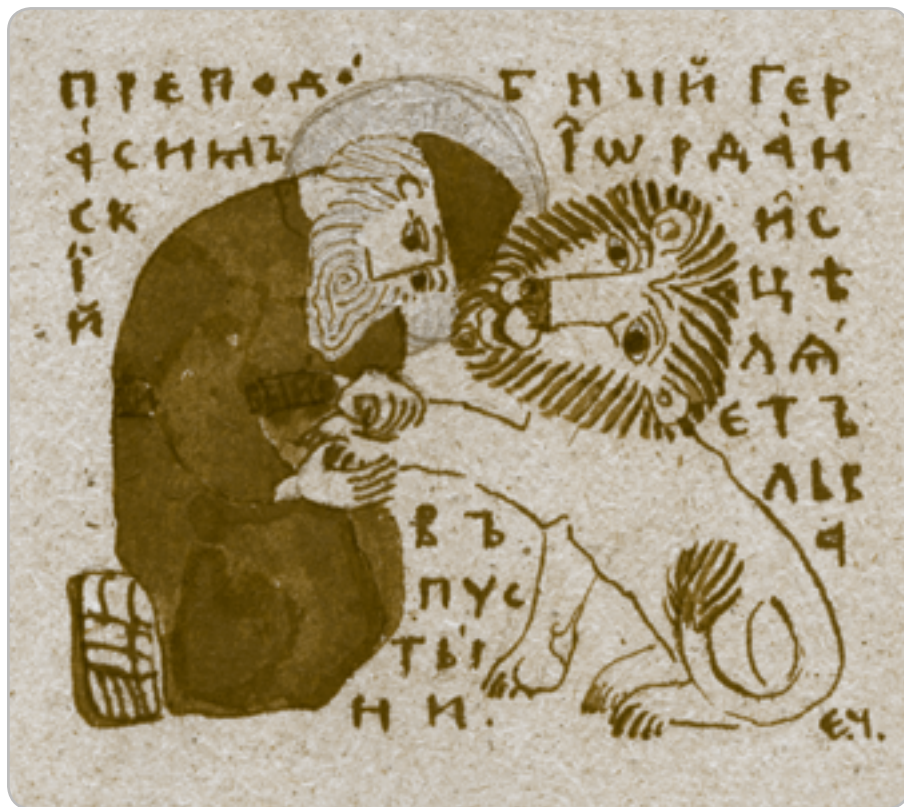 ПРЕПОДО́БНЫЙ ГЕР
А́СИМЪ І҆ѠРДА́Н
СК
І́
Й
И҆С
ЦѢ
ЛѦ́
ЕТЪ
ЛЬВ
А
ВЪ
ПУС
ТЫ́
НИ.
Є.Ч.